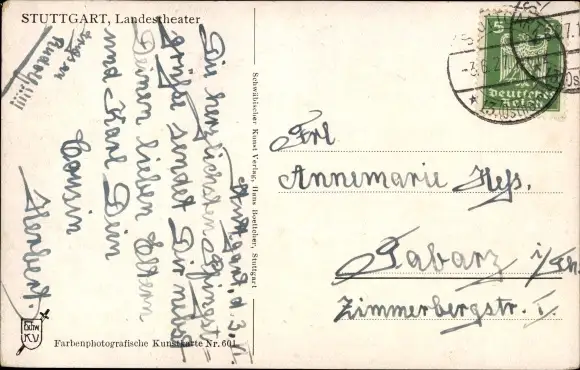 STUTTGART, Landestheater
Stuttgart, d. 3. VI.
Die herzlichsten Pfingst-
grüße sendet Dir nebst
Deinen lieben Eltern
und Karl Dein
Cousin
Herbert.
Schwäbischer Kunst Verlag, Hans Boettcher, Stuttgart
Farbenphotografische Kunstkarte Nr. 601
5
Deutsches
Reich
Frl
Annemarie Heß.
Tabarz i/Th.
Zimmerbergstr. I.